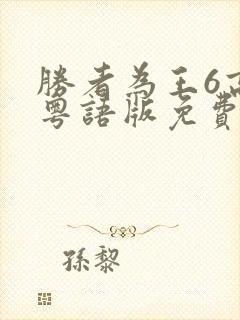 勝者為王6高
粵語版免費
孫黎